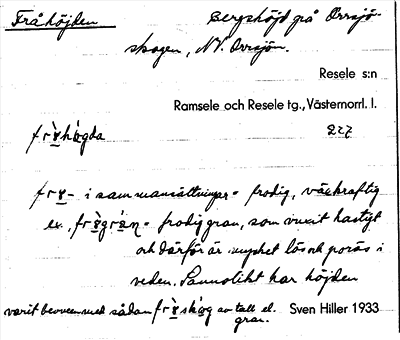 Fråhöjden
Bergshöjd på Orrsjö-
skogen, NV. Orrsjön.
Resele s:n
Ramsele och Resele tg., Västernorrl. l.
227
frɤ̀hǿgda
frɤ- i sammansättningar = frodig, växkraftig
ex. frɤ̀gráṇ = frodig gran, som vuxit hastigt
och därför är mycket lös och porös i
veden. Sannolikt har höjden
varit bevuxen med sådan frɤ̀skóg av tall el.
gran.
Sven Hiller 1933